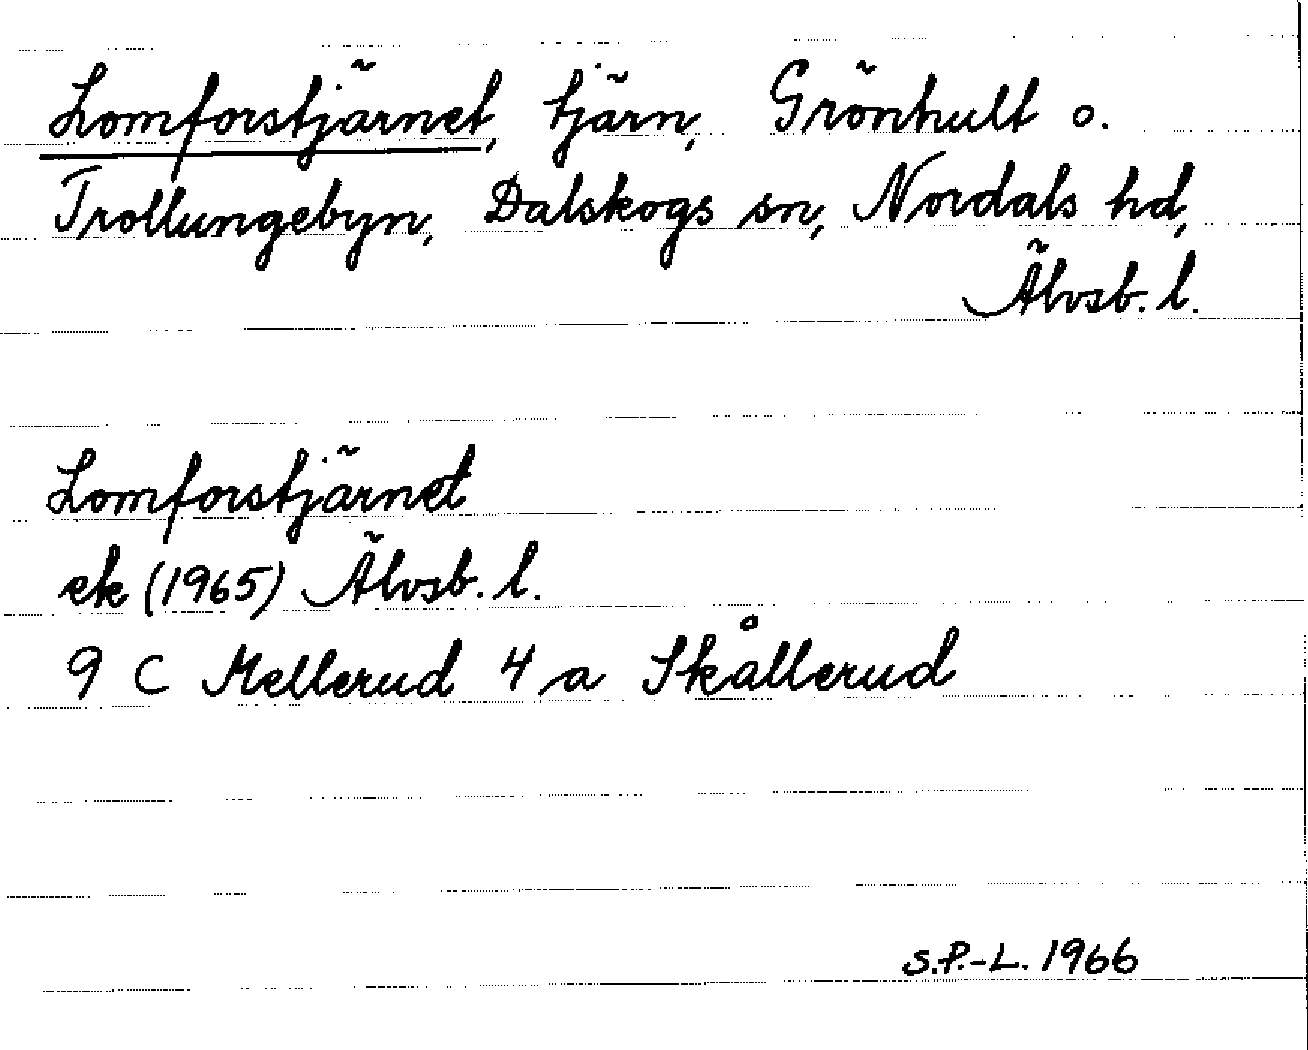 Lomforstjärnet, tjärn, Grönhult o.
Trollungebyn, Dalskogs sn, Nordals hd,
Älvsb. l.
Lomforstjärnet
ek (1965) Älvsb. l.
9 C Mellerud 4 a Skållerud
S.P.-L. 1966